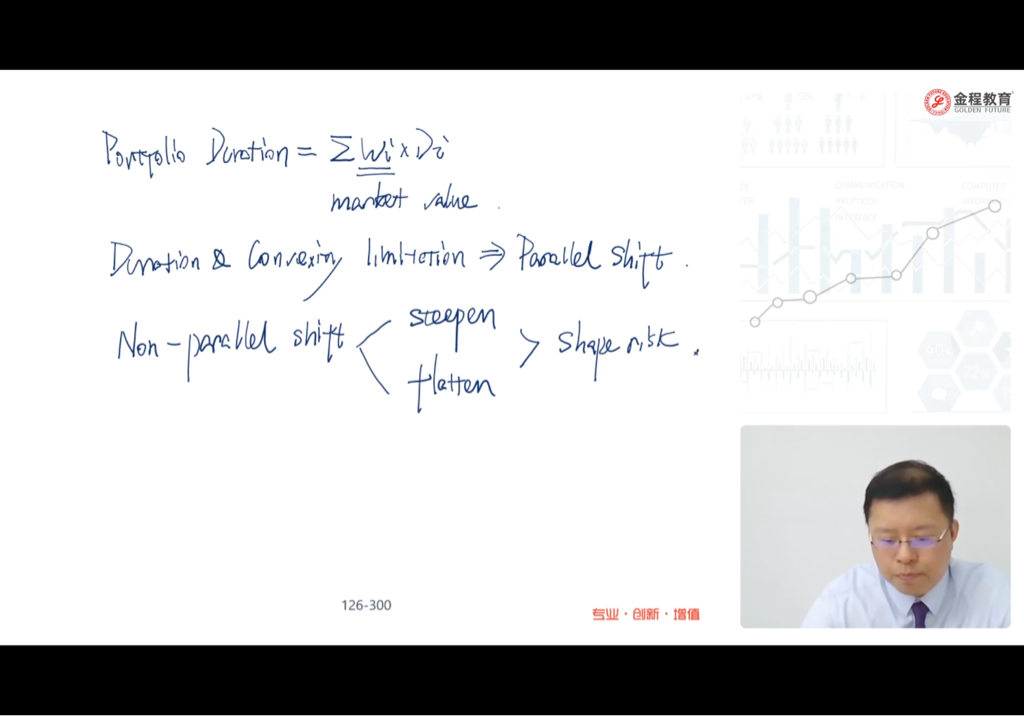 金程教育
GOLDEN FUTURE
Portfolio Duration = Σ Wi × Di
market value .
Duration & Convexity limitation ⇒ Parallel shift .
Non-parallel shift < steepen
flatten > shape risk .
126-300
专业·创新·增值